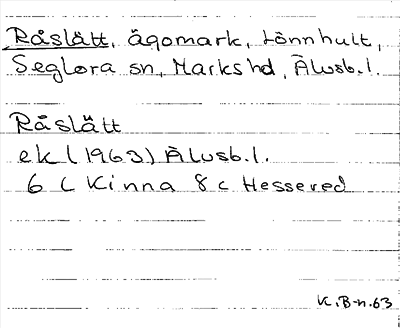 Råslätt, ägomark, Lönnhult,
Seglora sn, Marks hd, Älvsb.l.
Råslätt
ek (1963) Älvsb.l.
6 C Kinna 8c Hessered
K.B-n.63